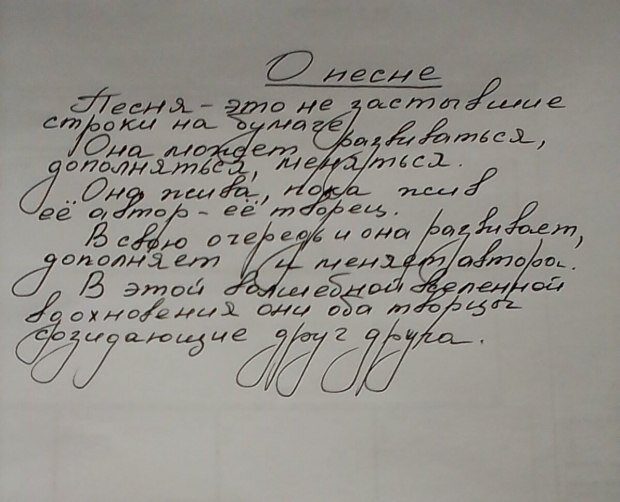 О песне
Песня - это не застывшие
строки на бумаге.
Она может развиваться,
дополняться, меняться.
Она жива, пока жив
её автор - её творец.
В свою очередь и она развивает,
дополняет и меняет автора.
В этой волшебной вселенной
вдохновения они оба творцы
созидающие друг друга.